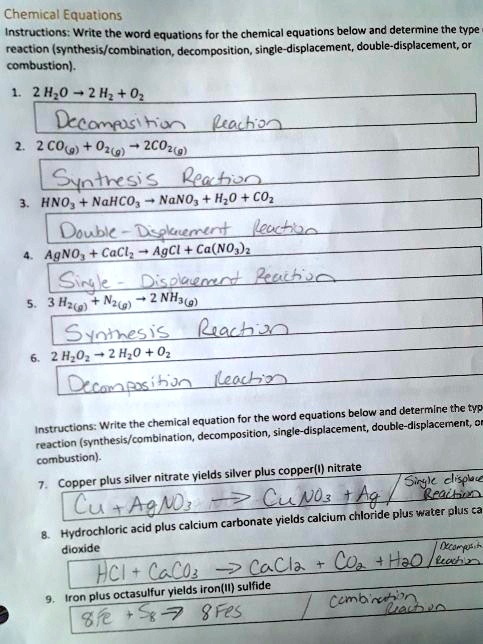 Chemical Equations
Instructions: Write the word equations for the chemical equations below and determine the type
reaction (synthesis/combination, decomposition, single-displacement, double-displacement, or
combustion).
1. 2 H₂O → 2 H₂ + O₂
Decomposition Reaction
2. 2 CO(g) + O₂(g) → 2CO₂(g)
Synthesis Reaction
3. HNO₃ + NaHCO₃ → NaNO₃ + H₂O + CO₂
Double - Displacement Reaction
4. AgNO₃ + CaCl₂ → AgCl + Ca(NO₃)₂
Single - Displacement Reaction
5. 3 H₂(g) + N₂(g) → 2 NH₃(g)
Synthesis Reaction
6. 2 H₂O₂ → 2 H₂O + O₂
Decomposition Reaction
Instructions: Write the chemical equation for the word equations below and determine the typ
reaction (synthesis/combination, decomposition, single-displacement, double-displacement, or
combustion).
7. Copper plus silver nitrate yields silver plus copper(I) nitrate
Cu + AgNO₃ → CuNO₃ + Ag / Single displace Reaction
8. Hydrochloric acid plus calcium carbonate yields calcium chloride plus water plus ca
dioxide
HCl + CaCO₃ → CaCl₂ + CO₂ + H₂O / Decomposit Reaction
9. Iron plus octasulfur yields iron(II) sulfide
8Fe + S₈ → 8FeS / Combination Reaction